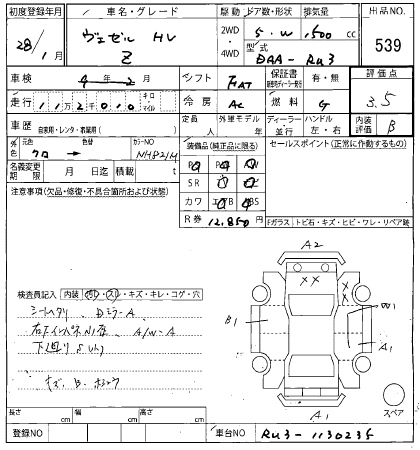 初度登録年月 車名・グレード 駆動 ドア数・形状 排気量 出品NO.
28年1月 ヴェゼル HV Z 2WD・4WD 5・W 1,500 cc 539
型式 DAA-RU3
車検 年 2月 シフト FAT 保証書 有・無 評価点
走行 112,000 キロ・マイル 冷房 AC 燃料 G 3.5
車歴 自家用・レンタ・教習用 定員 人 外車モデル ディーラー・並行 ハンドル 左・右 内装評価 B
外色 元色 クロ → 色替 カラーNO NH821M
装備品(純正品に限る) セールスポイント(正常に作動するもの)
名義変更期限 月 日迄 積載 t
SR
カワ
注意事項(欠品・修復・不具合箇所および状態)
R券 12,850 Fガラス トビ石・キズ・ヒビ・ワレ・リペア跡
検査員記入 内装
キズ・キレ・コゲ・穴
シートヘタリ DミラーA
A/W-A
下廻りSUト
キズ B
A2
XX
XX
B1
W1
A1
A1
スペア
長さ cm 幅 cm 高さ cm
登録NO 車台NO RU3-1130235